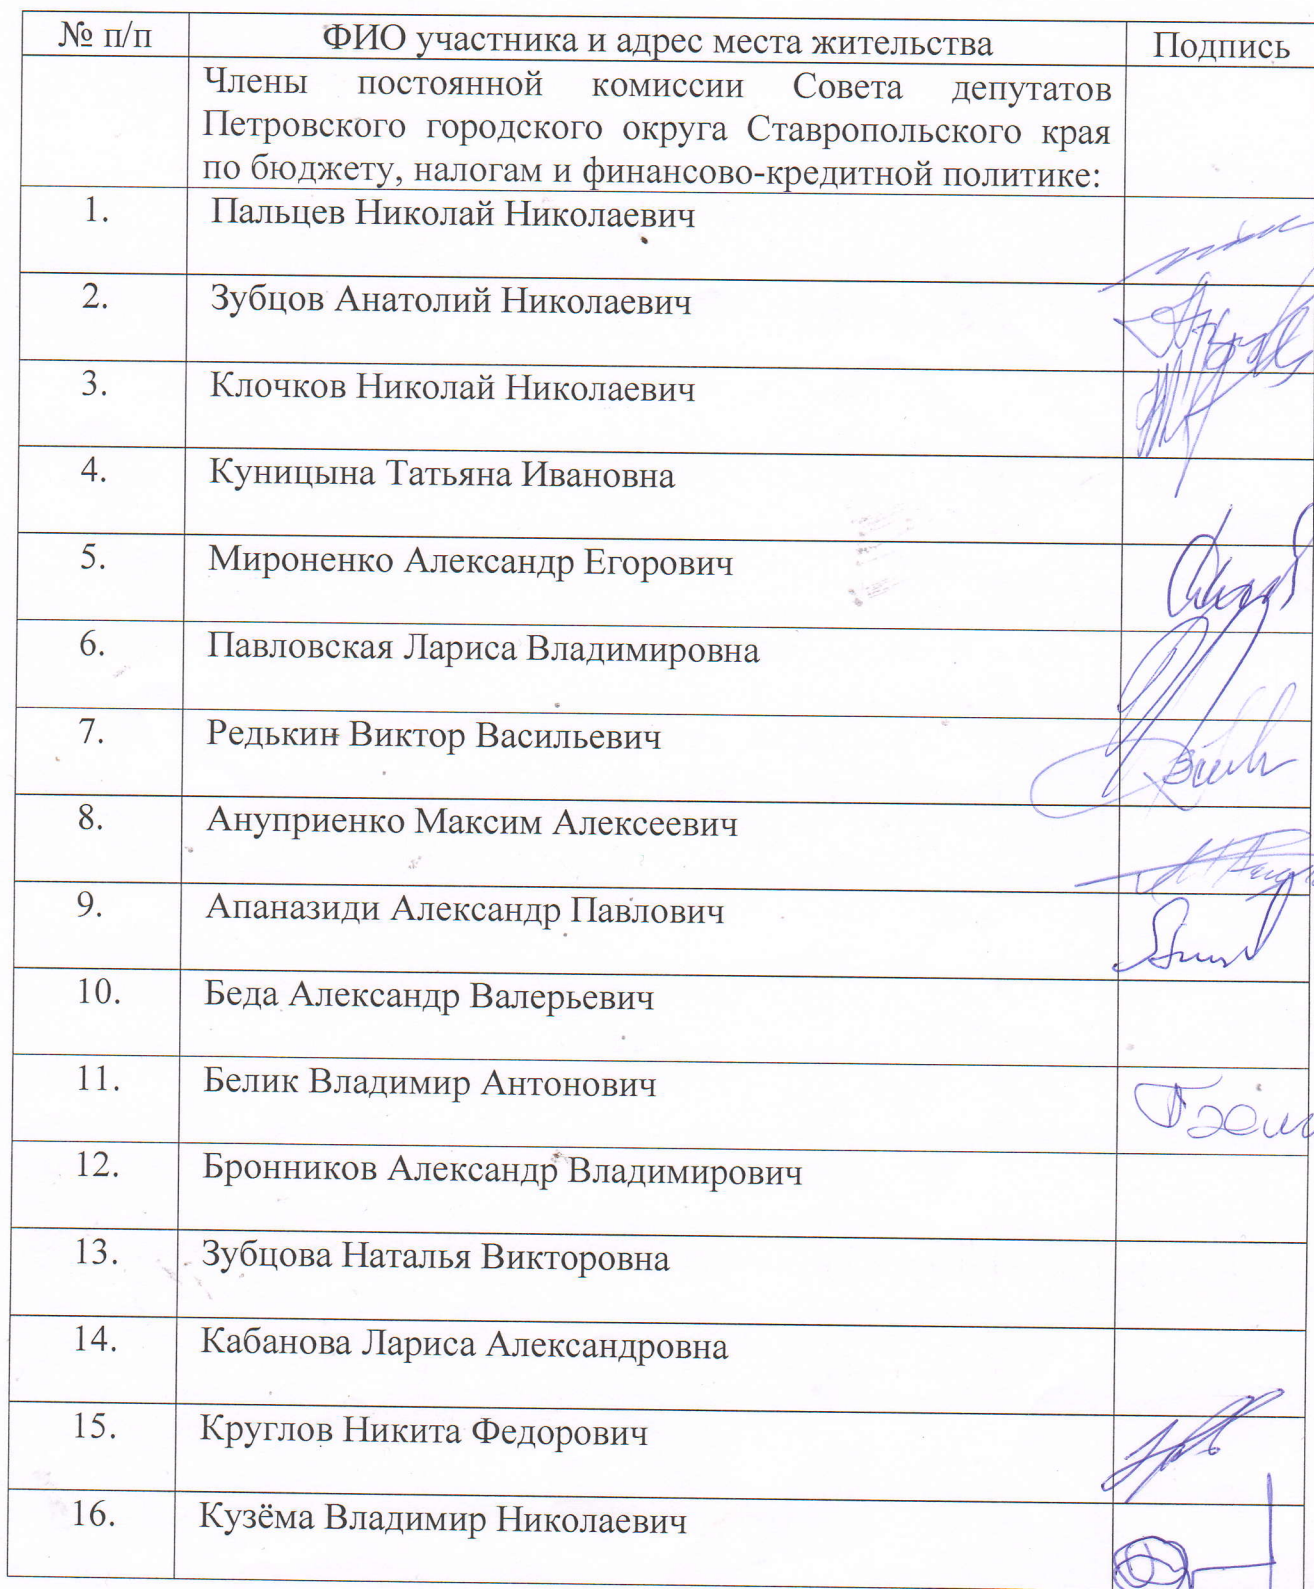 № п/п ФИО участника и адрес места жительства Подпись
Члены постоянной комиссии Совета депутатов
Петровского городского округа Ставропольского края
по бюджету, налогам и финансово-кредитной политике:
1. Пальцев Николай Николаевич
2. Зубцов Анатолий Николаевич
3. Клочков Николай Николаевич
4. Куницына Татьяна Ивановна
5. Мироненко Александр Егорович
6. Павловская Лариса Владимировна
7. Редькин Виктор Васильевич
8. Ануприенко Максим Алексеевич
9. Апаназиди Александр Павлович
10. Беда Александр Валерьевич
11. Белик Владимир Антонович
12. Бронников Александр Владимирович
13. Зубцова Наталья Викторовна
14. Кабанова Лариса Александровна
15. Круглов Никита Федорович
16. Кузёма Владимир Николаевич